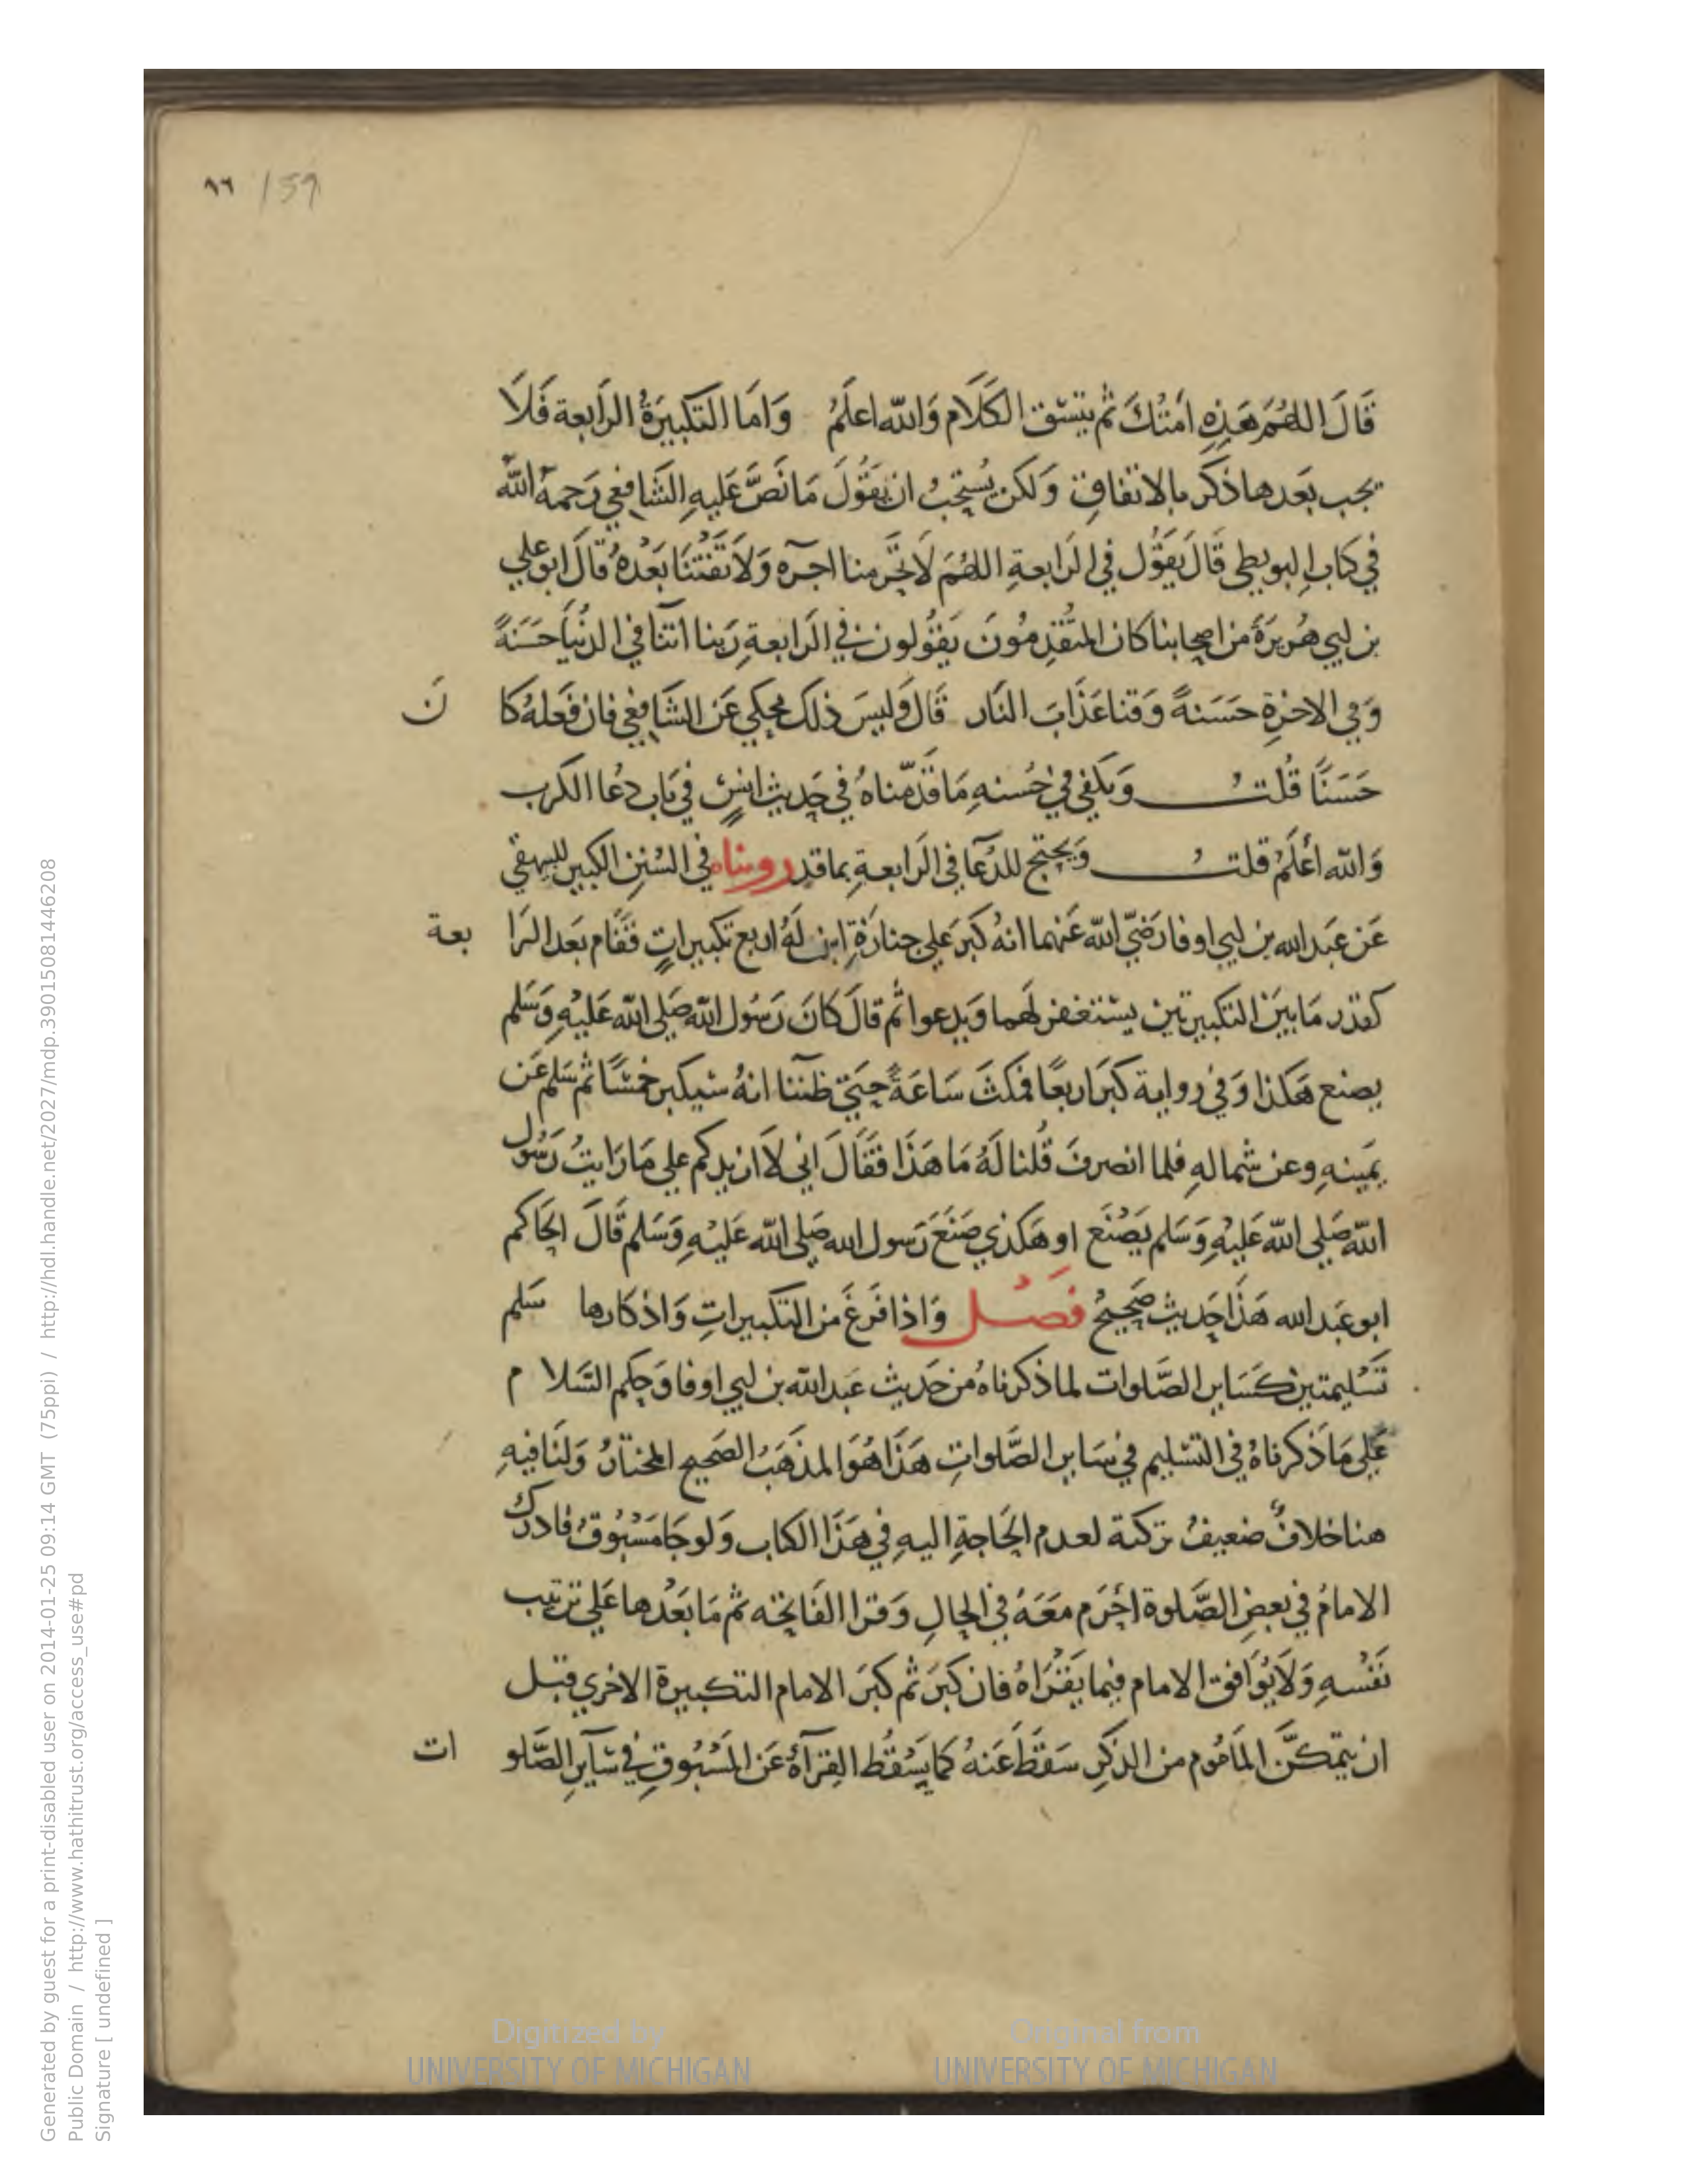 ٩٦ /59
قَالَ اللهُمَّ هَذِهِ اَمَتُكَ ثُم يَتسّق الكَلَام وَاللّه اعلَمُ وَامَا التكبيرَةُ الرَابعة فَلَا
يجب بَعدها ذكر بالاتفاقِ وَلكن يُستَحِبُ ان يَقُولَ مَا نَصَّ عَليهِ الشَافعي رَحمهُ اللّه
في كتابِ البويطي قَالَ يَقُول في الرَابعةِ اللهُمَّ لَا تحَرمنا اجرَه وَلاَ تَفتْنَا بَعْدهُ قالَ ابو علي
بن ابي هُريرَةَ من اصحابنا كان المتَقدِمُونَ يَقُولون في الرَابعةِ رَبنا اتنا في الدنُيَا حَسَنةً
وَفي الاخرَةِ حَسَنةً وَقنا عَذَابَ النَار قَالَ وَليسَ ذلك بمحكي عَن الشَافعي فان فَعَلهُ كا نَ
حَسَنًا قُلتُ وَيَكفي في حُسنهِ مَا قَدّمناهُ في حَديث انسٍ في بَاب دعُا الكرب
وَاللّه اعْلَمُ قلتُ وَيحتج للدُعَا في الرَابعةِ بما قد روينَاه في السُنن الكبير للبيهقي
عَن عَبد الله بن ابي اوفا رَضيّ اللّه عَنهما انهُ كبرَ علي جنازَةِ ابن لَهُ اربع تكبيراتٍ فقَام بعَد الرَا بعة
كقدر مَا بَينَ التكبيرتين يستغفر لهَما وَيدعوا ثُم قالَ كَانَ رَسُول اللّه صَلي اللّه عَليْهِ وَسَلم
يصنع هَكذا وَفي رواية كبرَ اربعًا فمكثَ سَاعَةً حَتي ظننا انهُ سُيكبر خمسًا ثُم سَلم عَن
يمَينهِ وعن شمالهِ فلما انصرفَ قُلنا لَهُ مَا هَذَا فقَالَ اني لاَ ازيدكم علي مَا رَايتُ رَسُول
اللّه صَلي اللّه عَليْهِ وَسَلم يَصْنَع او هَكذي صَنَعَ رَسول الله صَلي اللّه عَليْهِ وَسَلم قَالَ الحَاكم
ابو عَبد الله هَذَا حَديث صَحِيحُ فصَْل وَاذا فَرغَ من التكبيراتِ وَاذكارها سَلم
تَسْليمتين كسَاير الصَّلوات لما ذكرناهُ من حَديث عَبد اللّه بن ابي اوفا وَحكم السَلا م
عَلي مَا ذكرناهُ في التسَليم في سَاير الصَّلواتِ هَذَا هُوَ المذهَبُ الصَحيح المختارُ وَلنَا فيهِ
هنا خلافٌ ضعيفُ تركتة لعدم الحَاجةِ اليهِ في هَذَا الكتاب وَلو جَا مَسْبُوقُ فادرك
الامامُ في بعضِ الصَّلوة احَرم معَهُ في الحالِ وَقرا الفَاتحَه ثم مَا بَعْدها عَلي ترتيب
نَفسْهِ وَلاَ يُوَافق الامام فيما يَقرَاهُ فان كبرَ ثم كبرَ الامام التكبيرة الاخري قبل
ان يتمكنَّ المَامُوم من الذكرِ سَقطَ عَنهُ كما يَسْقُط القرآةُ عَن المَسْبُوقِ في سَايرِ الصَّلو ات
Generated by guest for a print-disabled user on 2014-01-25 09:14 GMT (75ppi) / http://hdl.handle.net/2027/mdp.39015081446208
Public Domain / http://www.hathitrust.org/access_use#pd
Signature [ undefined ]
Digitized by
UNIVERSITY OF MICHIGAN
Original from
UNIVERSITY OF MICHIGAN